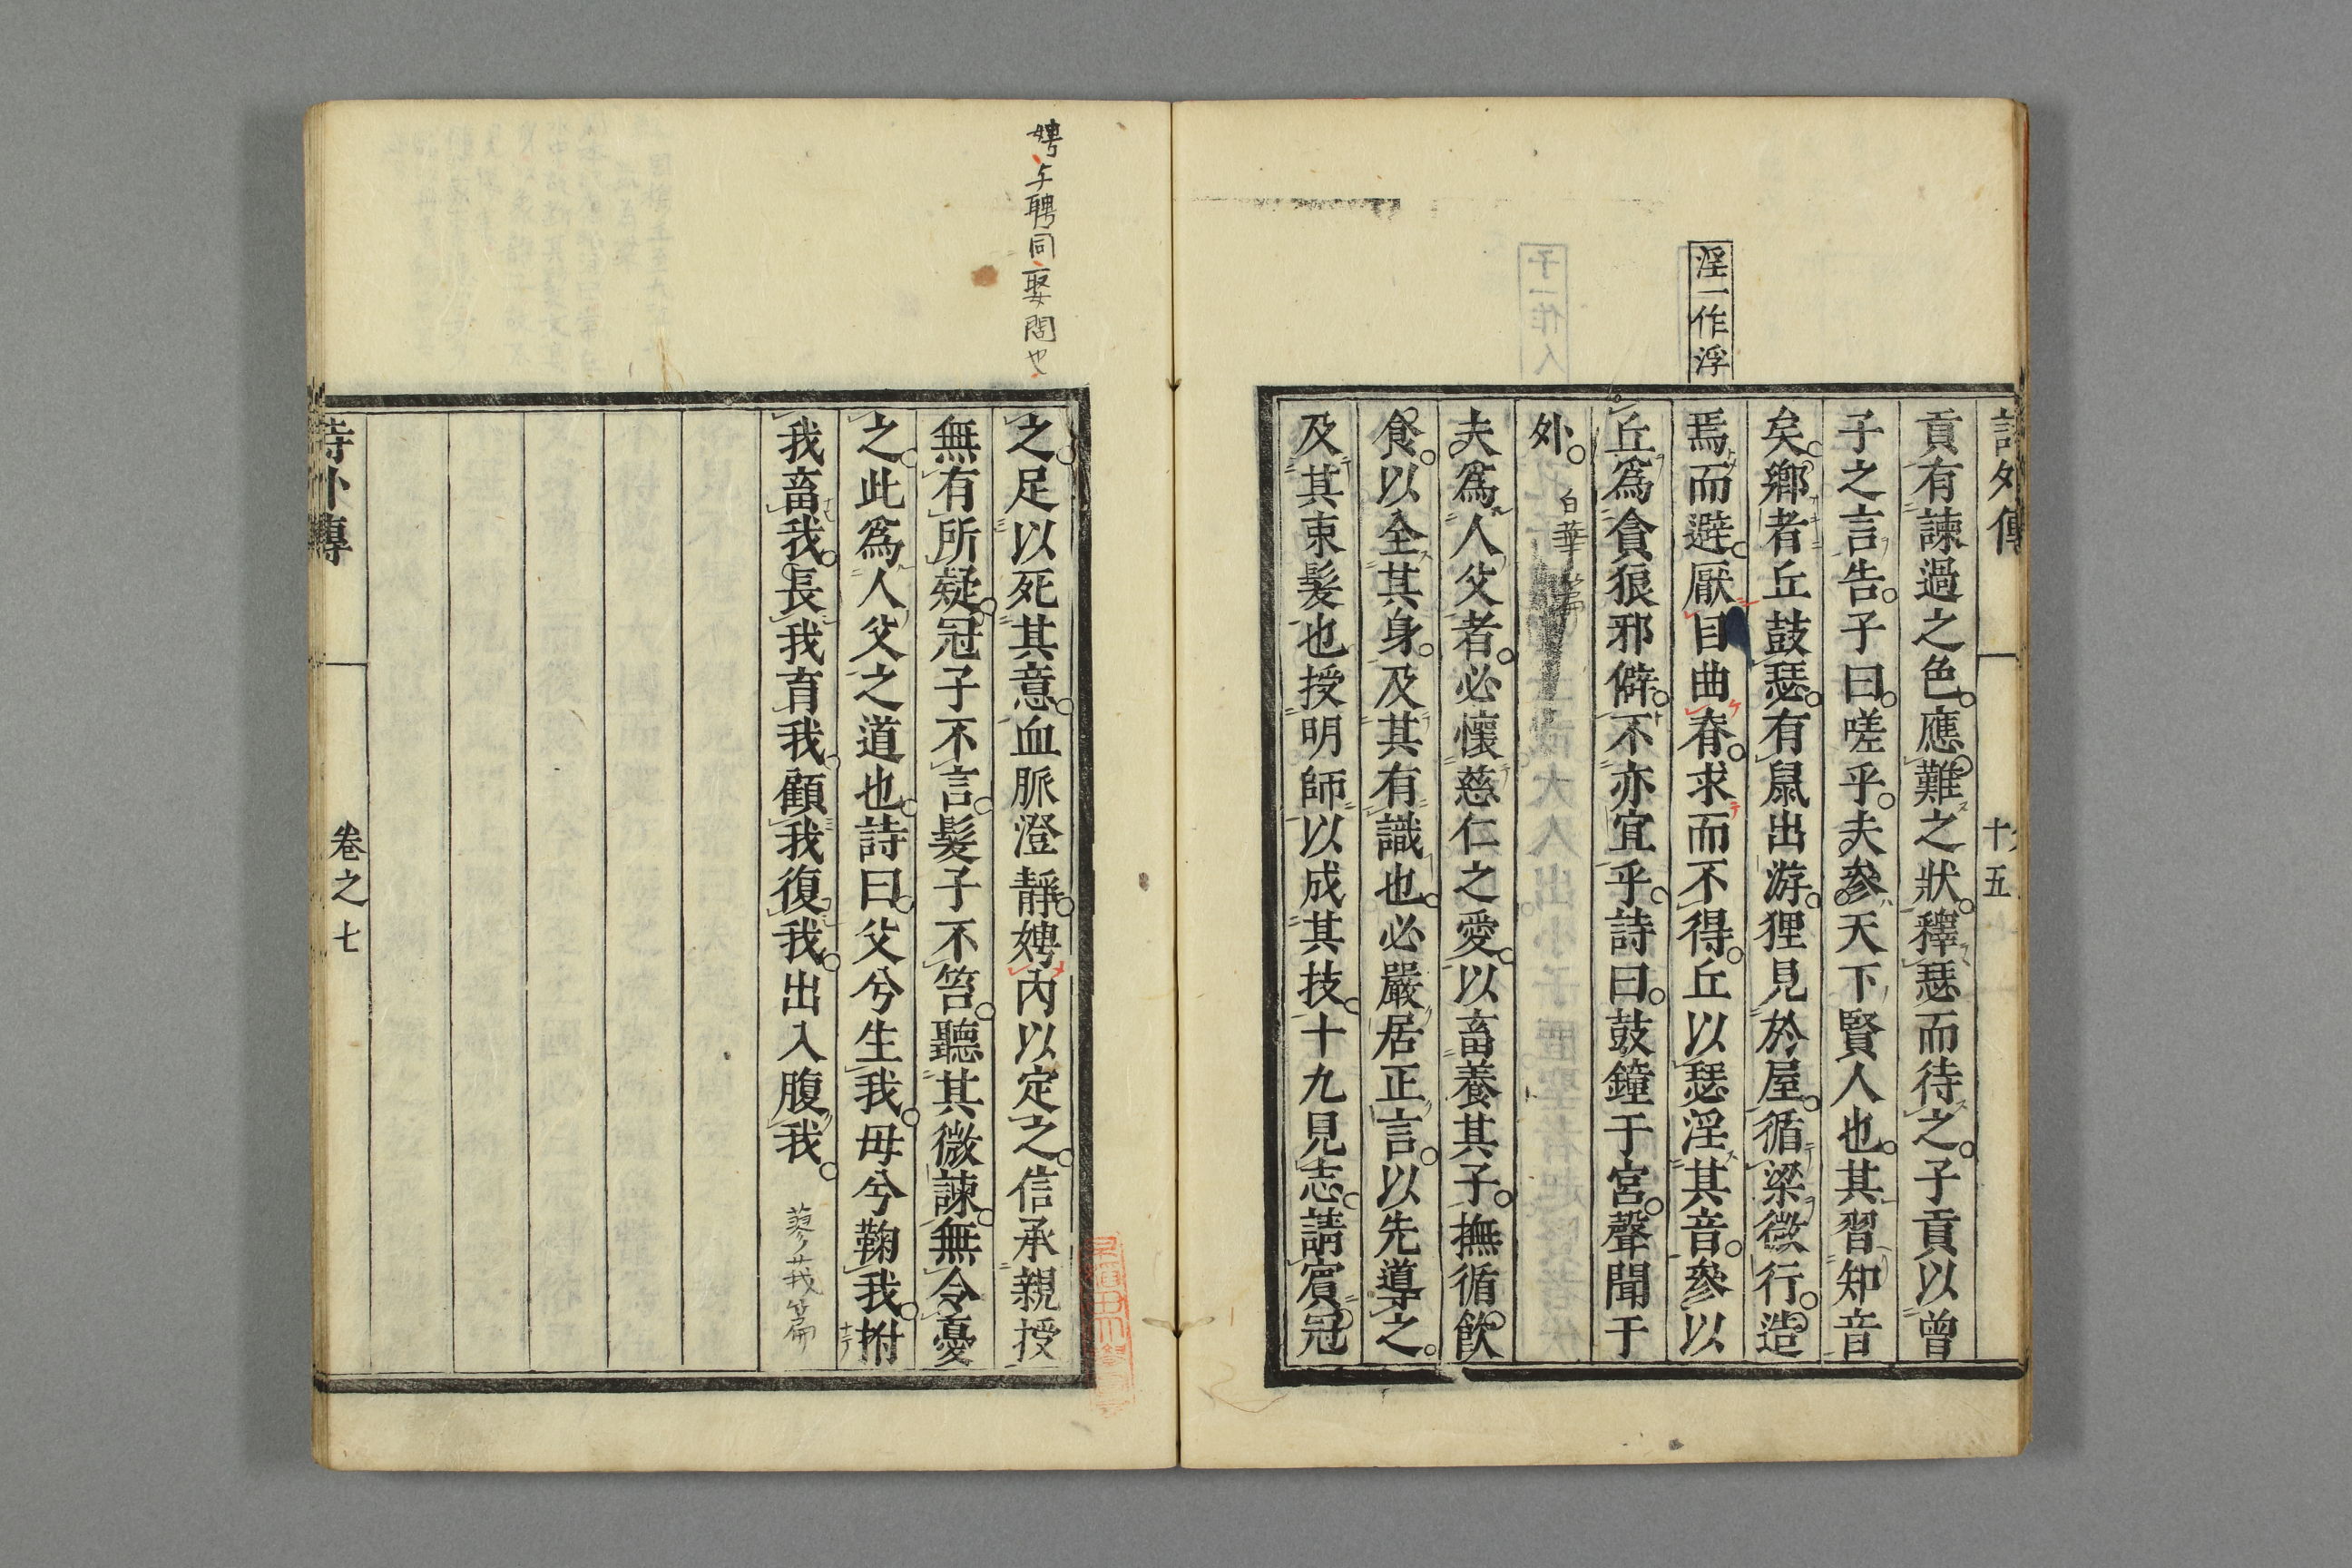 詩外傳
十五
貢有諫過之色應難之狀釋瑟而待之子貢以曾
子之言告子曰嗟乎夫參天下賢人也其習知音
矣鄉者丘鼓瑟有鼠出游狸見於屋循梁微行造
焉而避厭目曲脊求而不得丘以瑟淫其音參以
淫一作浮
丘爲貪狼邪僻不亦宜乎詩曰鼓鐘于宮聲聞于
外 白華篇
夫爲人父者必懷慈仁之愛以畜養其子撫循飮
食以全其身及其有識也必嚴居正言以先導之
及其束髮也授明師以成其技十九見志請賓冠
之足以死其意血脈澄靜娉內以定之信承親授
娉与聘同娶問也
無有所疑冠子不言髮子不笞聽其微諫無令憂
之此爲人父之道也詩曰父兮生我母兮鞠我拊
我畜我長我育我顧我復我出入腹我 蓼莪篇
詩外傳
卷之七